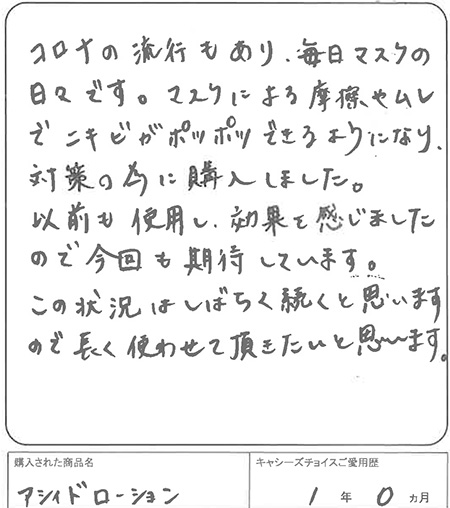 コロナの流行もあり、毎日マスクの
日々です。マスクによる摩擦やムレ
でニキビがポツポツできるようになり、
対策の為に購入しました。
以前も使用し、効果を感じました
ので今回も期待しています。
この状況はしばらく続くと思います
ので長く使わせて頂きたいと思います。
購入された商品名
キャシーズチョイスご愛用歴
アシィドローション
1年0ヵ月